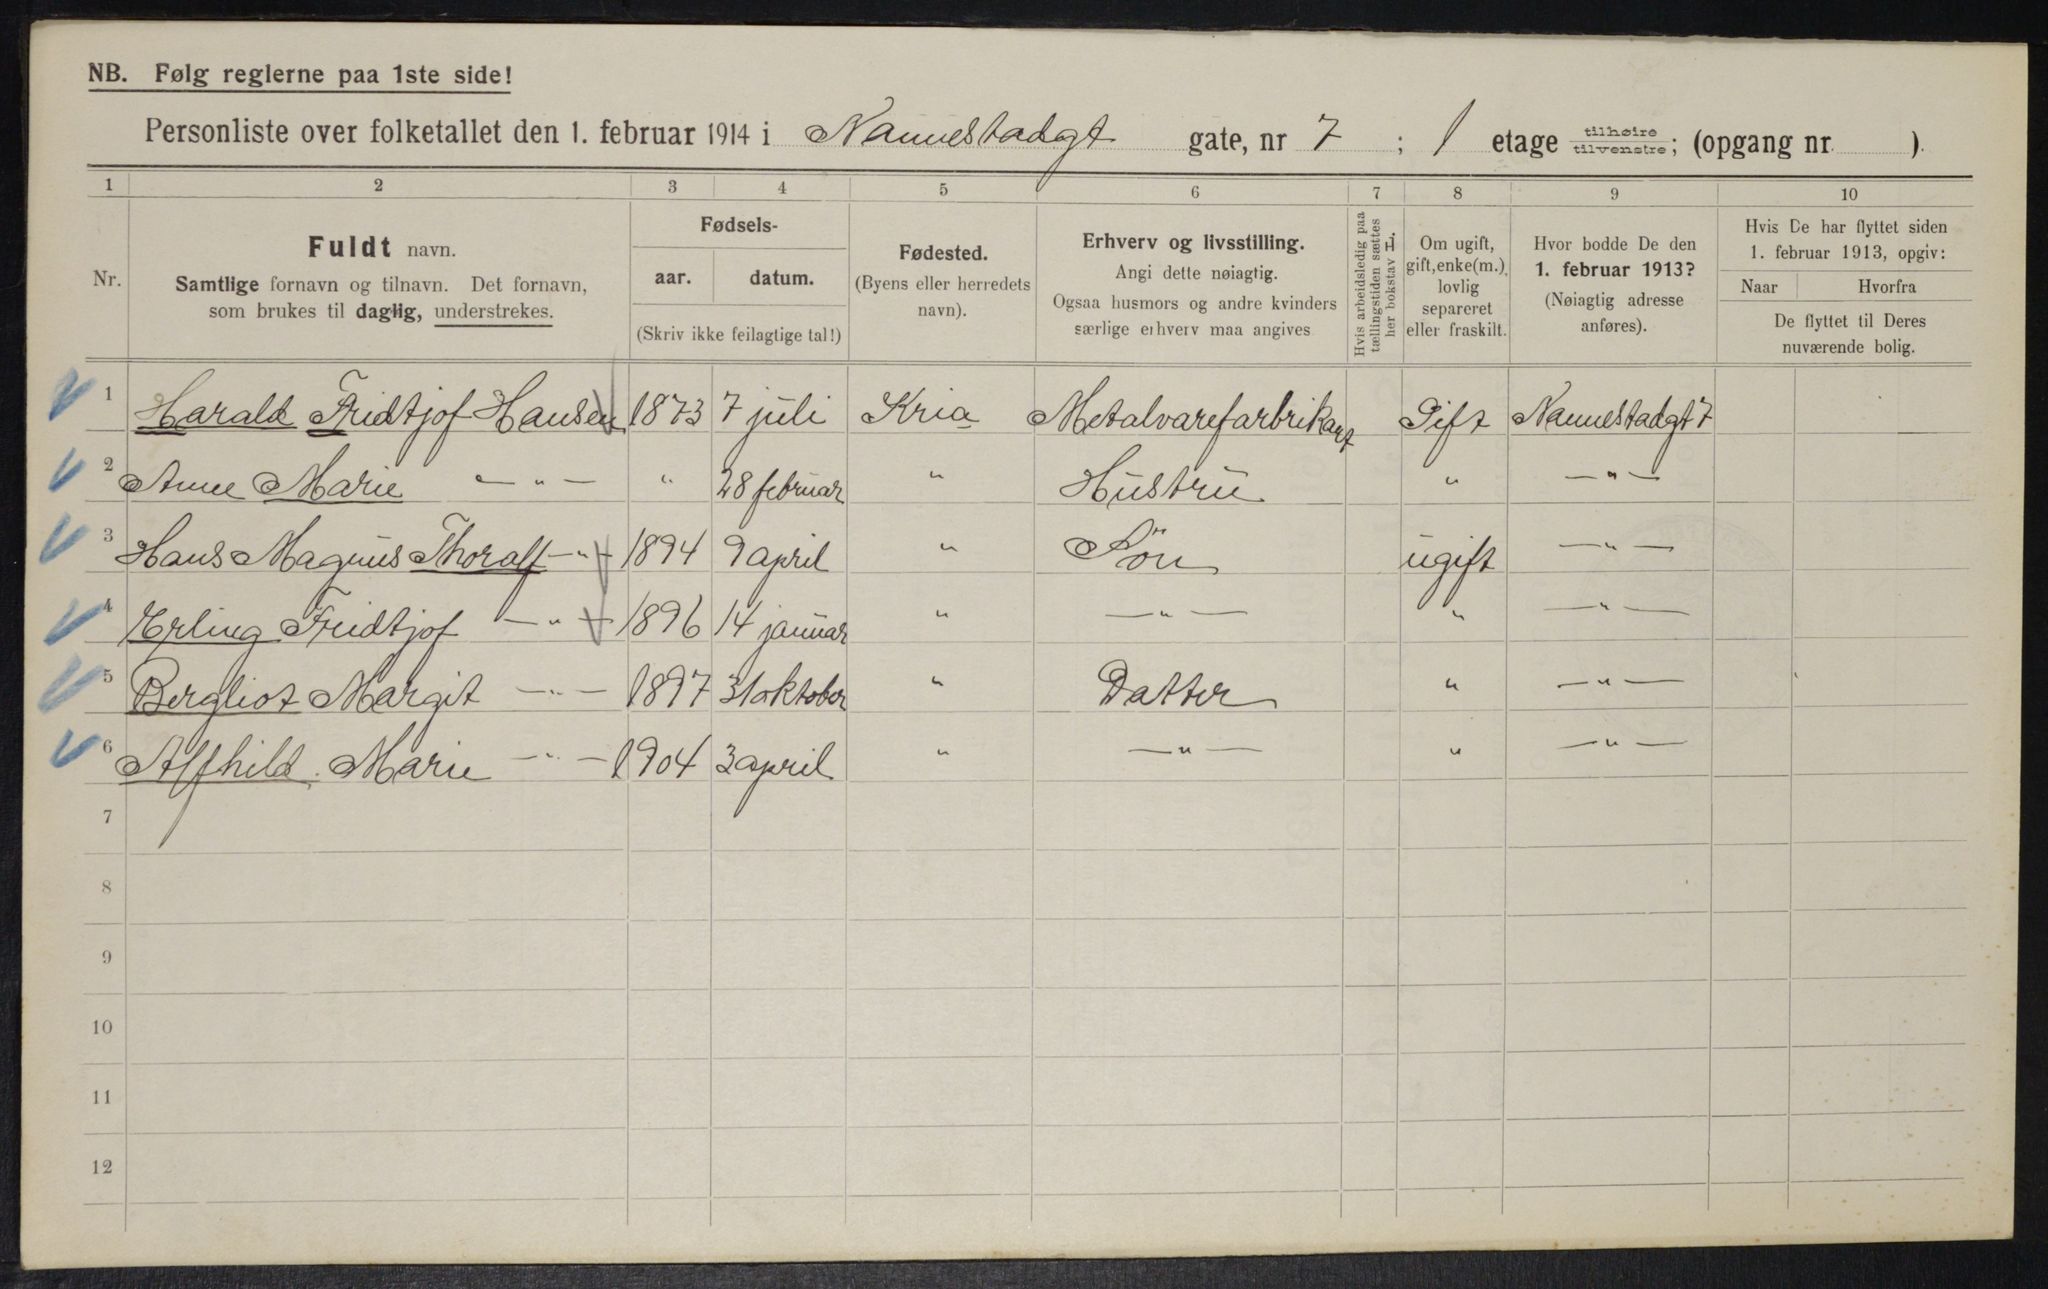 NB. Følg reglerne paa 1ste side!
Personliste over folketallet den 1. februar 1914 i Nannestadgt gate, nr 7 ; 1 etage tilhøire tilvenstre; (opgang nr. ).
1 2 3 4 5 6 7 8 9 10
Nr.
Fuldt navn.
Samtlige fornavn og tilnavn. Det fornavn,
som brukes til daglig, understrekes.
Fødsels-
aar. datum.
(Skriv ikke feilagtige tal!)
Fødested.
(Byens eller herredets
navn).
Erhverv og livsstilling.
Angi dette nøiagtig.
Ogsaa husmors og andre kvinders
særlige erhverv maa angives
Hvis arbeidsledig paa
tællingstiden sættes
her bokstav L.
Om ugift,
gift, enke(m.),
lovlig
separeret
eller fraskilt.
Hvor bodde De den
1. februar 1913?
(Nøiagtig adresse
anføres).
Hvis De har flyttet siden
1. februar 1913, opgiv:
Naar Hvorfra
De flyttet til Deres
nuværende bolig.
1 Harald Fridtjof Hansen 1873 7 juli Kria Metalvarefarbrikant Gift Nannestadgt 7
2 Anne Marie — " — " 28 februar " Hustru " — " —
3 Hans Magnus Thoralf — " — 1894 9 april " Sön ugift — " —
4 Erling Fridtjof — " — 1896 14 januar " — " — " — " —
5 Bergliot Margit — " — 1897 31 oktober " Datter " — " —
6 Alfhild Marie — " — 1904 3 april " — " — " — " —
7
8
9
10
11
12